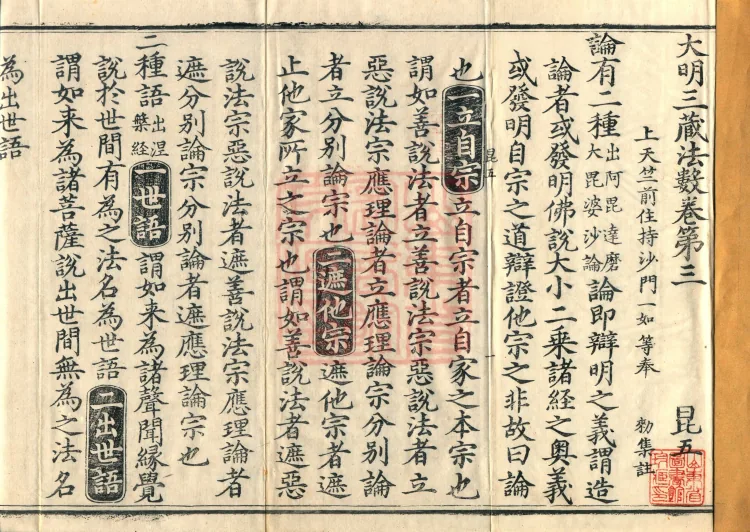 大明三藏法數卷第三 昆五
上天竺前住持沙門一如等奉 勑集註
論有二種出阿毘達磨大毘婆沙論論即辯明之義謂造
論者或發明佛說大小二乘諸經之奧義
或發明自宗之道辯證他宗之非故曰論
昆五
也一立自宗立自宗者立自家之本宗也
謂如善說法者立善說法宗惡說法者立
惡說法宗應理論者立應理論宗分別論
者立分別論宗也二遮他宗遮他宗者遮
止他家所立之宗也謂如善說法者遮惡
說法宗惡說法者遮善說法宗應理論者
遮分別論宗分別論者遮應理論宗也
二種語出涅槃經一世語謂如來為諸聲聞緣覺
說於世間有為之法名為世語二出世語
謂如来為諸菩薩說出世間無為之法名
為出世語